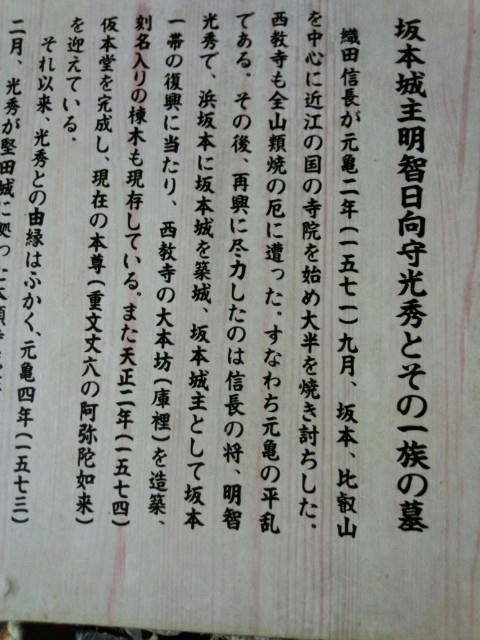 坂本城主明智日向守光秀とその一族の墓
織田信長が元亀二年(一五七一)九月、坂本、比叡山
を中心に近江の国の寺院を始め大半を焼き討ちした。
西教寺も全山類焼の厄に遭った。すなわち元亀の平乱
である。その後、再興に尽力したのは信長の将、明智
光秀で、浜坂本に坂本城を築城、坂本城主として坂本
一帯の復興に当たり、西教寺の大本坊(庫裡)を造築、
刻名入りの棟木も現存している。また天正二年(一五七四)
仮本堂を完成し、現在の本尊(重文丈六の阿弥陀如来)
を迎えている。
それ以来、光秀との由縁はふかく、元亀四年(一五七三)
二月、光秀が堅田城に拠った本願寺